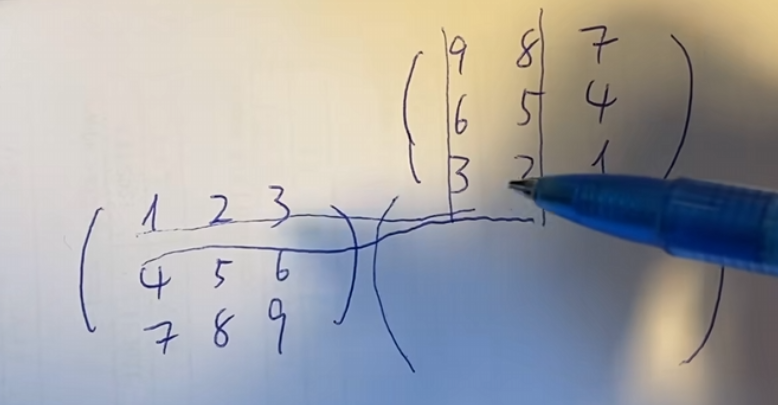 9 8 7
6 5 4
3 2 1
1 2 3
4 5 6
7 8 9